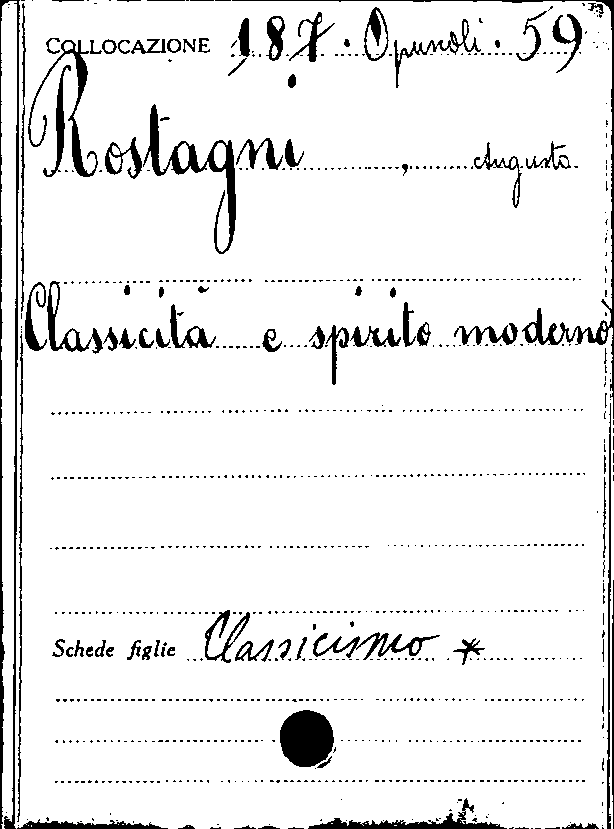 COLLOCAZIONE 187. Opuscoli. 59
Rostagni, Augusto
Classicità e spirito moderno
Schede figlie Classicismo *